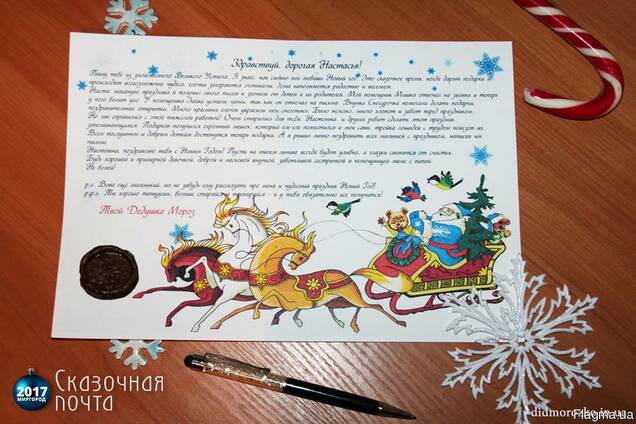 Здравствуй, дорогая Настасья!
Пишу тебе из заснеженного Великого Устюга. Я знаю, как сильно ты любишь Новый год. Это сказочное время, когда дарят подарки и
происходят всевозможные чудеса, ёлочки загораются огоньками, дома наполняются радостью и весельем.
Настя, накануне праздника я получил много писем и звонков от детей и их родителей. Мой помощник Мишка отвечал на звонки и теперь
у него болит ухо. У помощника Зайки устали лапки, так как он отвечал на письма. Внучка Снегурочка помогала делать подарки,
поздравительные открытки. Много красивых ёлочек украсили мои снеговики. Было много, много хлопот и забот перед праздником.
Но мы справились с этой тяжелой работой! Очень старались для тебя, Настенька, и других ребят сделать этот праздник
запоминающимся. Подарков получился огромный мешок, который еле-еле поместился в мои сани, тройка лошадей с трудом повезет их.
Всем послушным и добрым деткам достанутся теперь подарки. А я решил лично поздравить всех малышей с праздником, написав им
письма.
Настенька, поздравляю тебя с Новым Годом! Пусть на твоем личике всегда будет улыбка, а глазки светятся от счастья.
Будь хорошей и примерной девочкой, доброй и ласковой внучкой, заботливой сестричкой и помощницей маме с папой.
Не болей!
p.s. Вова еще маленький, но не забудь ему рассказать про меня и чудесный праздник Новый Год!
p.p.s. Ты хорошо танцуешь, больше старайся и тренируйся - и у тебя обязательно все получится!
Твой Дедушка Мороз
2017
МИРГОРОД
Сказочная
почта
Flagma.ua